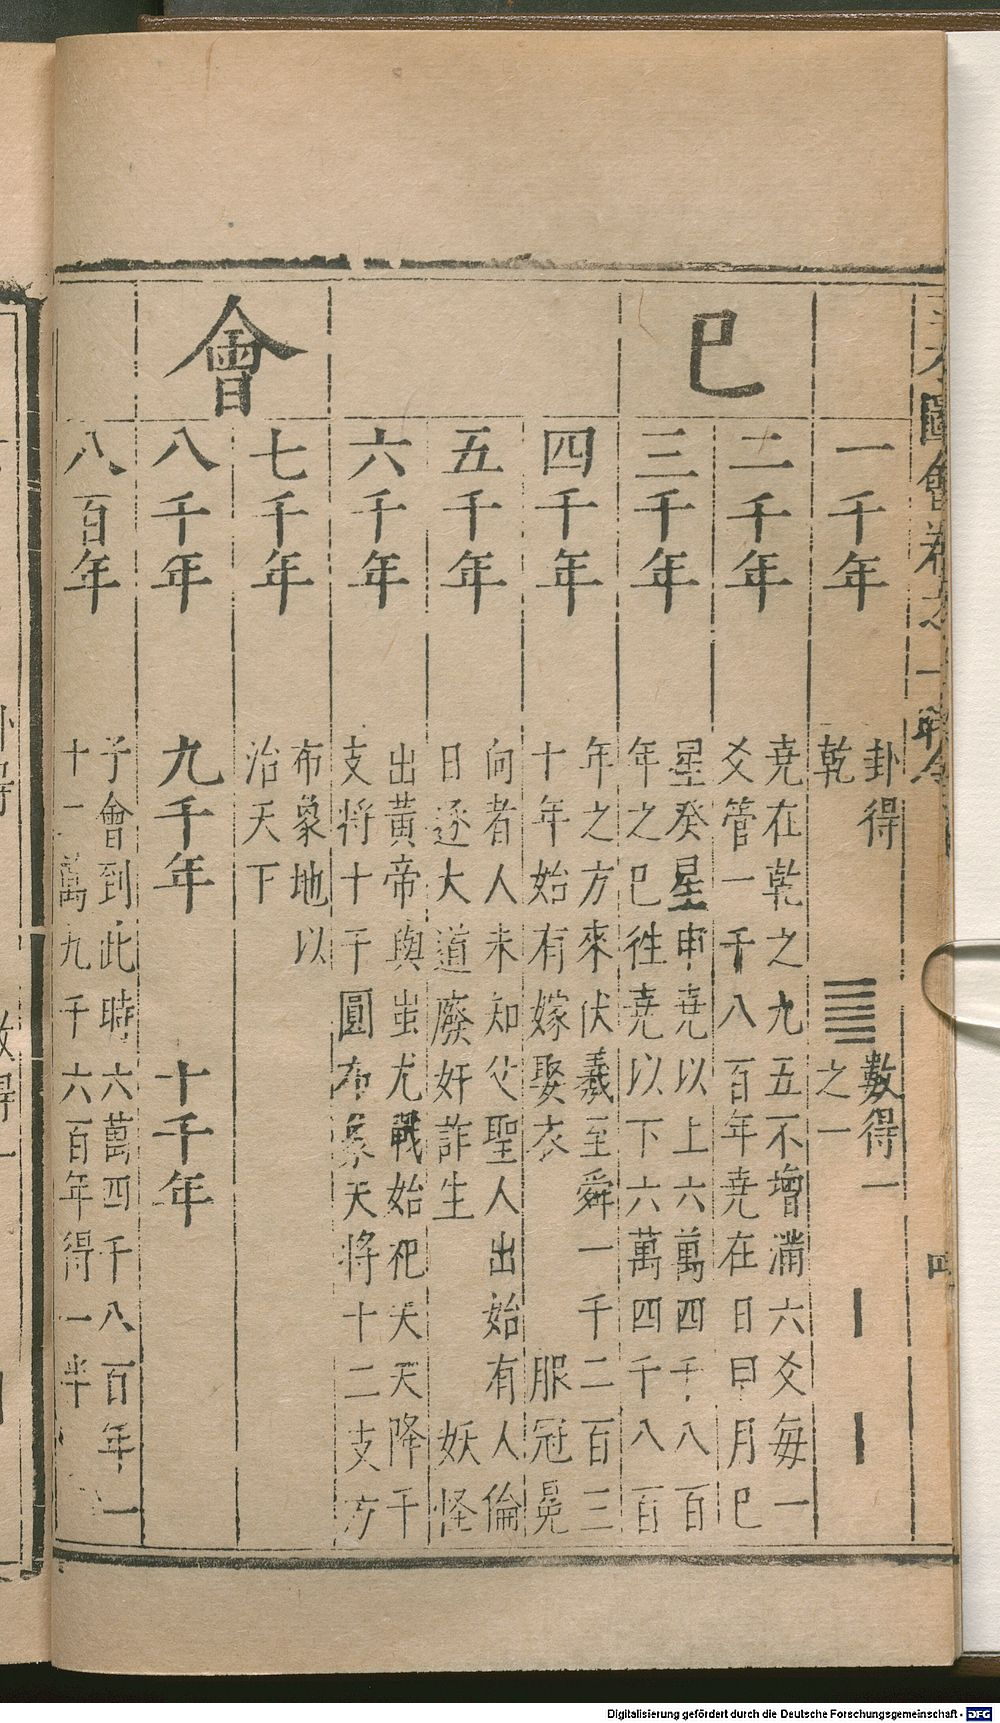 圖會卷之一
四
巳會
一千年
卦得
數得一
乾
之一
二千年
堯在乾之九五不增滿六爻每一
爻管一千八百年堯在日曰月巳
三千年
星癸星申堯以上六萬四千八百
年之巳徃堯以下六萬四千八百
四千年
年之方來伏羲至舜一千二百三
十年始有嫁娶衣服冠冕
五千年
向者人未知父聖人出始有人倫
日逐大道廢奸詐生妖怪
六千年
出黃帝與蚩尤戰始祀天天降干
支将十干圓布象天将十二支方
七千年
布象地以
治天下
八千年
九千年
十千年
八百年
子會到此時六萬四千八百年一
十一萬九千六百年得一半
Digitalisierung gefördert durch die Deutsche Forschungsgemeinschaft - DFG